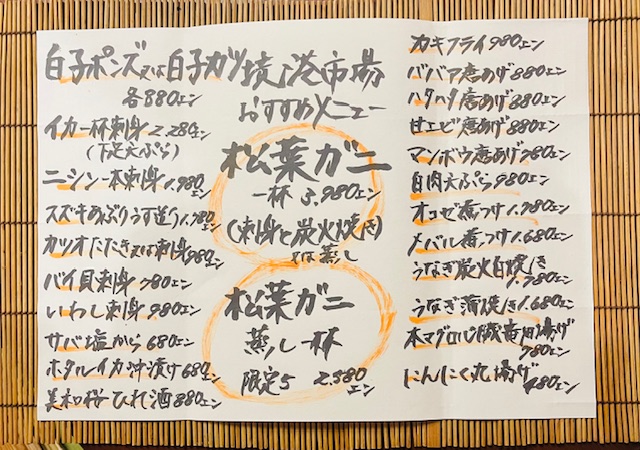 白子ポンズ又は白子カツ
各880エン
イカ一杯刺身 2,280エン
(下足天ぷら)
ニシン一本刺身 1,980エン
スズキあぶりうす造り 1,780エン
カツオたたき又は刺身 980エン
バイ貝刺身 780エン
いわし刺身 980エン
サバ塩から 680エン
ホタルイカ沖漬け 680エン
美和桜ひれ酒 880エン
境港市場
おすすめメニュー
松葉ガニ
一杯 3,980エン
(刺身と炭火焼き)
又は蒸し
松葉ガニ
蒸し一杯
限定5 2,980エン
カキフライ 980エン
ババア唐あげ 880エン
ハタハタ唐あげ 880エン
甘エビ唐あげ 880エン
マンボウ唐あげ 980エン
白肉天ぷら 980エン
オコゼ煮つけ 1,780エン
メバル煮つけ 1,680エン
うなぎ炭火白焼き
1,780エン
うなぎ蒲焼き 1,680エン
本マグロ
780エン
にんにく丸揚げ
480エン